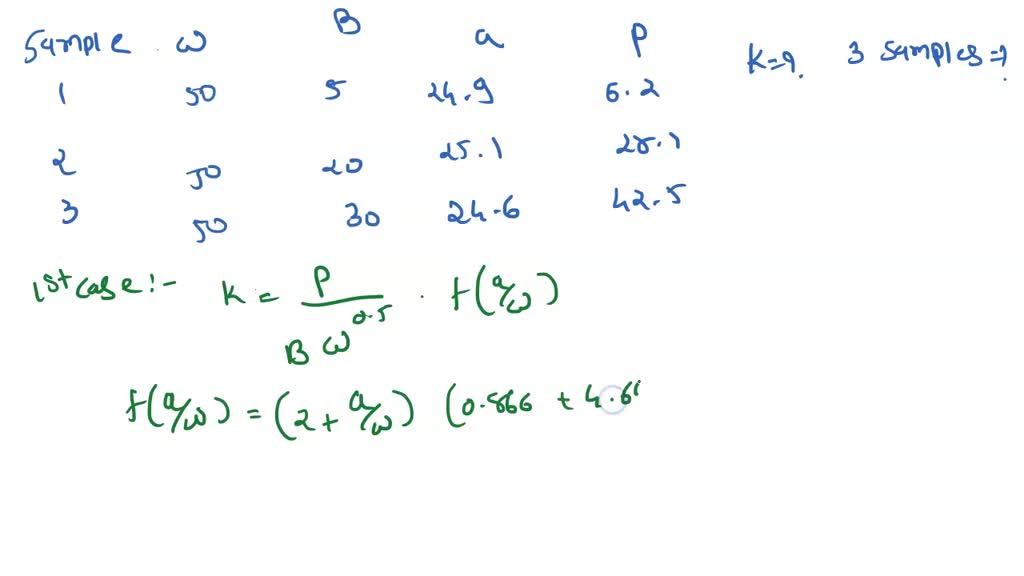 Sample ω B a P
1 50 5 24.9 6.2
2 50 20 25.1 28.1
3 50 30 24.6 42.5
K=?. 3 samples =?
1st case:- K = P / B ω^0.5 . f(a/ω)
f(a/ω) = (2 + a/ω) (0.866 + 4.6